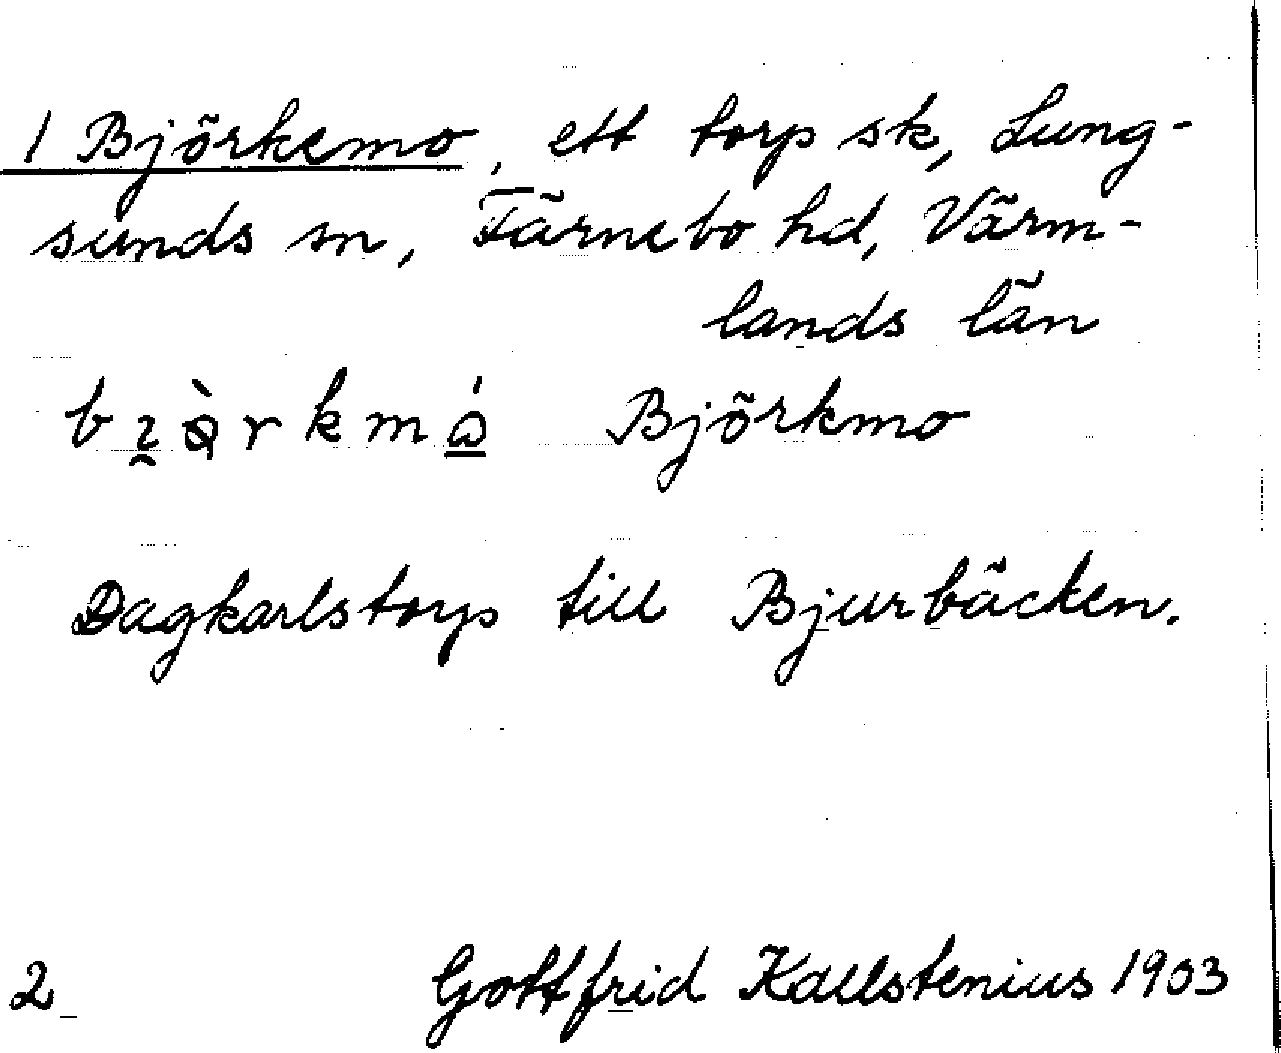 1 Björkemo, ett torp sk, Lung-
sunds sn, Färnebo hd, Värm-
lands län
Björkmo
Dagkarlstorp till Bjurbäcken.
2 Gottfrid Kallstenius 1903